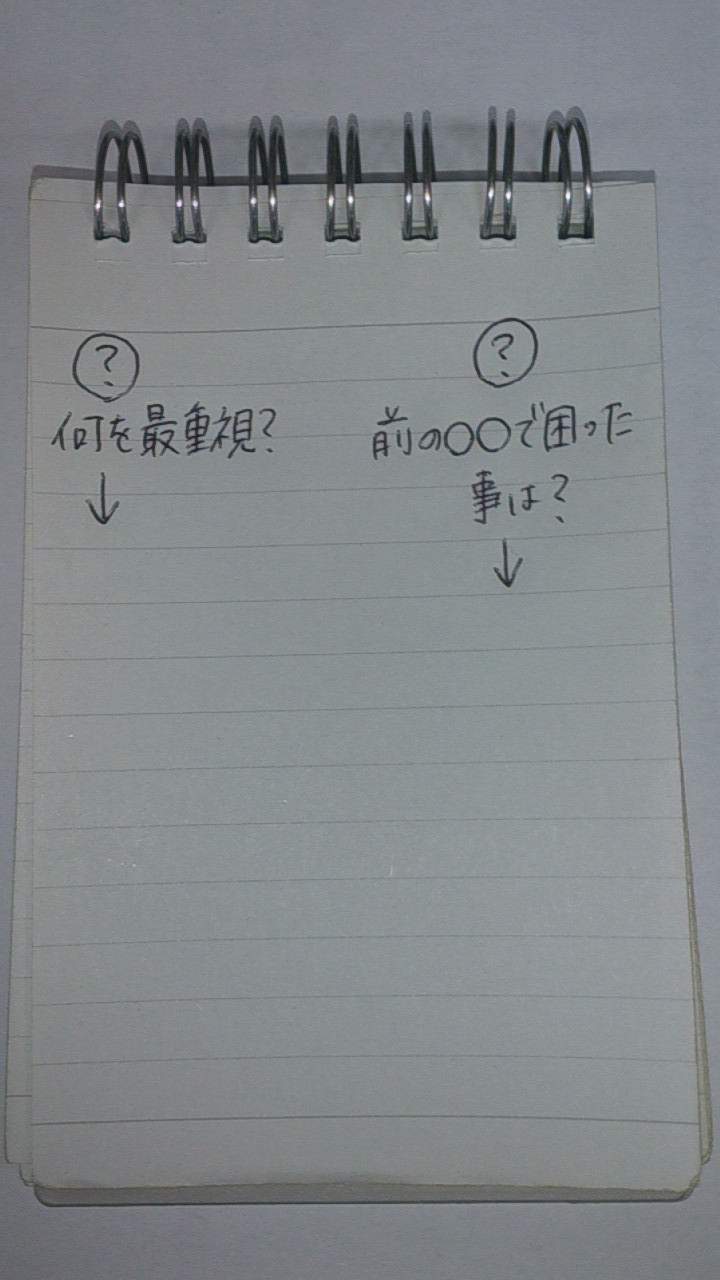 ?
何を最重視?
↓
?
前の〇〇で困った
事は?
↓